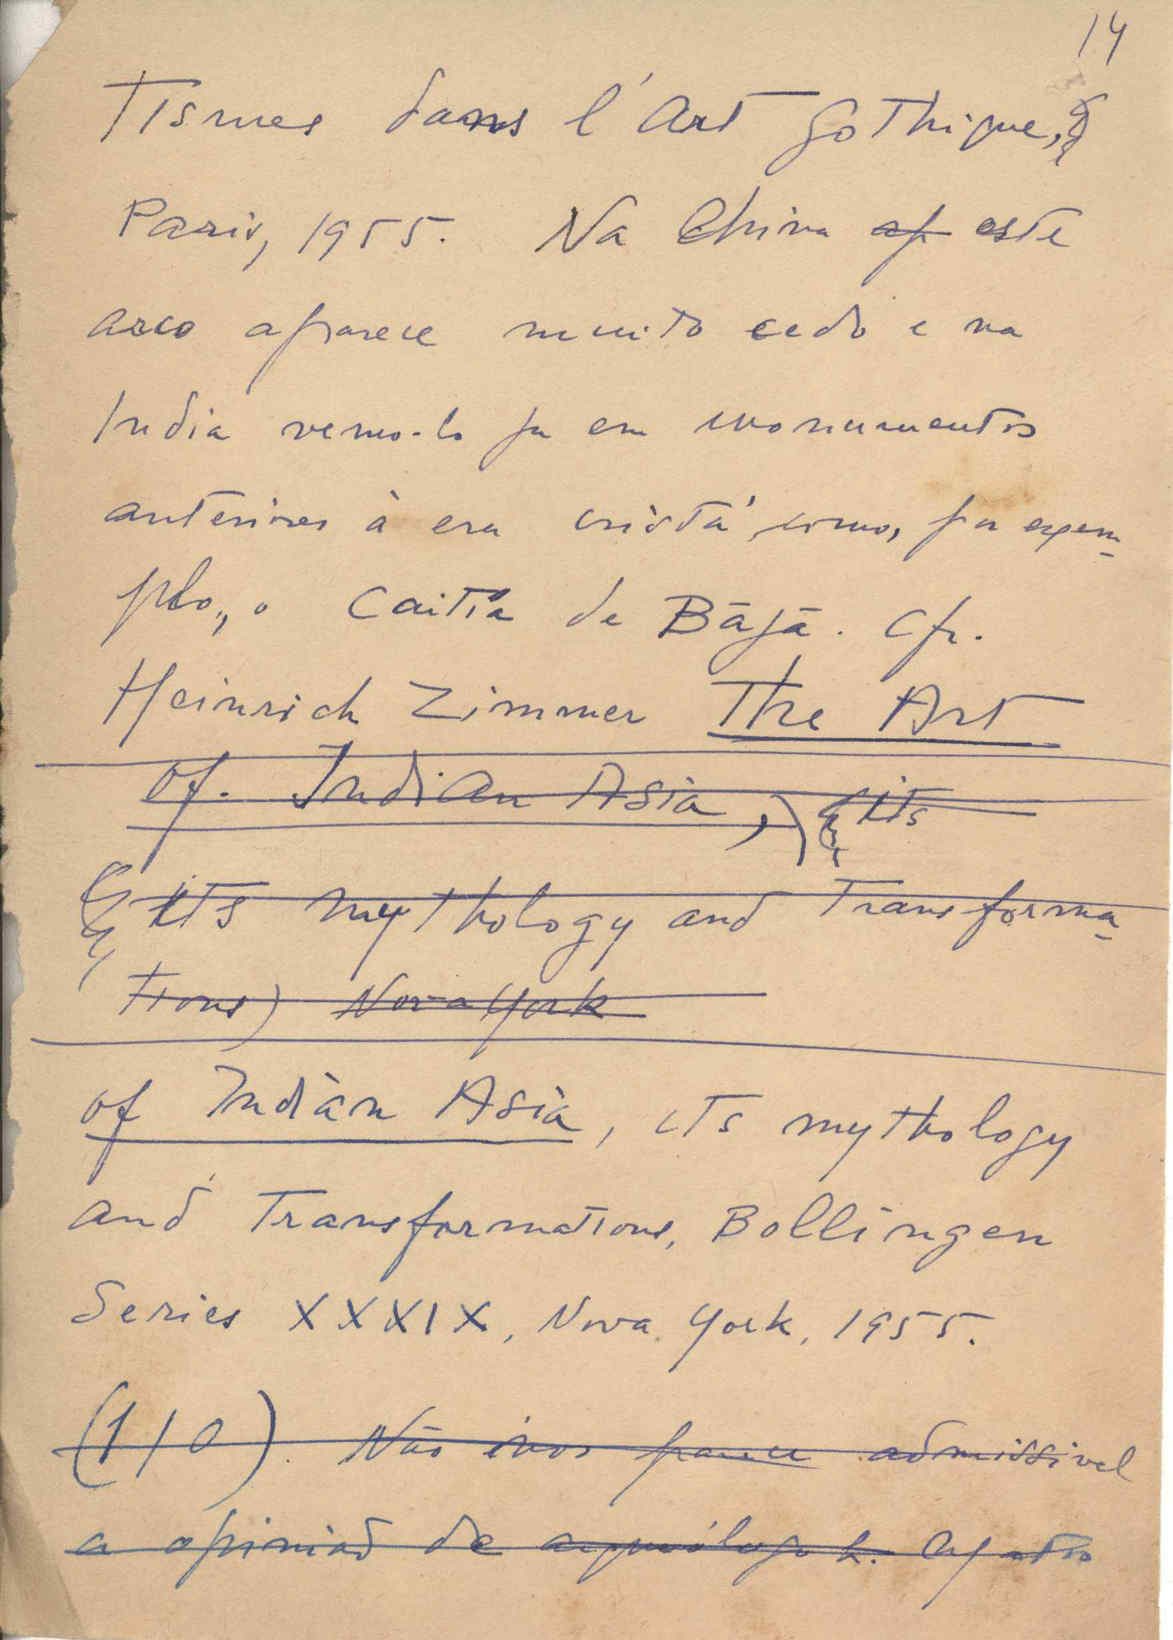 14
tismes dans l'art gothique,
Paris, 1955. Na China ap este
arco aparece muito cedo e na
India vemo-lo ja em monumentos
anteriores à era cristã, como, por exem-
plo, o Caitia de Bājā. Cfr.
Heinrich Zimmer The Art
of Indian Asia, its
its mythology and Transforma-
tions) Nova York
of Indian Asia, its mythology
and Transformations, Bollingen
Series XXXIX, Nova York, 1955.
(110). Não nos parece admissivel
a opinião de arqueólogo